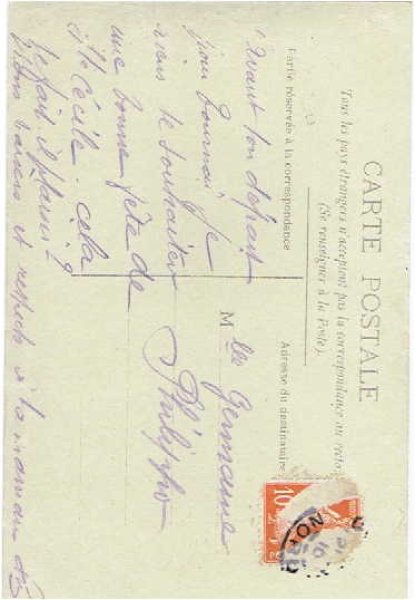 CARTE POSTALE
Tous les pays étrangers n'acceptent pas la correspondance au recto
(Se renseigner à la Poste).
Partie réservée à la correspondance
Avant ton départ
pour Je
viens te souhaiter
une bonne fête de
Ste Cécile cela
te fait il plaisir?
et respects à ta maman
Adresse du destinataire
Mlle Germaine
Philippe
10
NORD